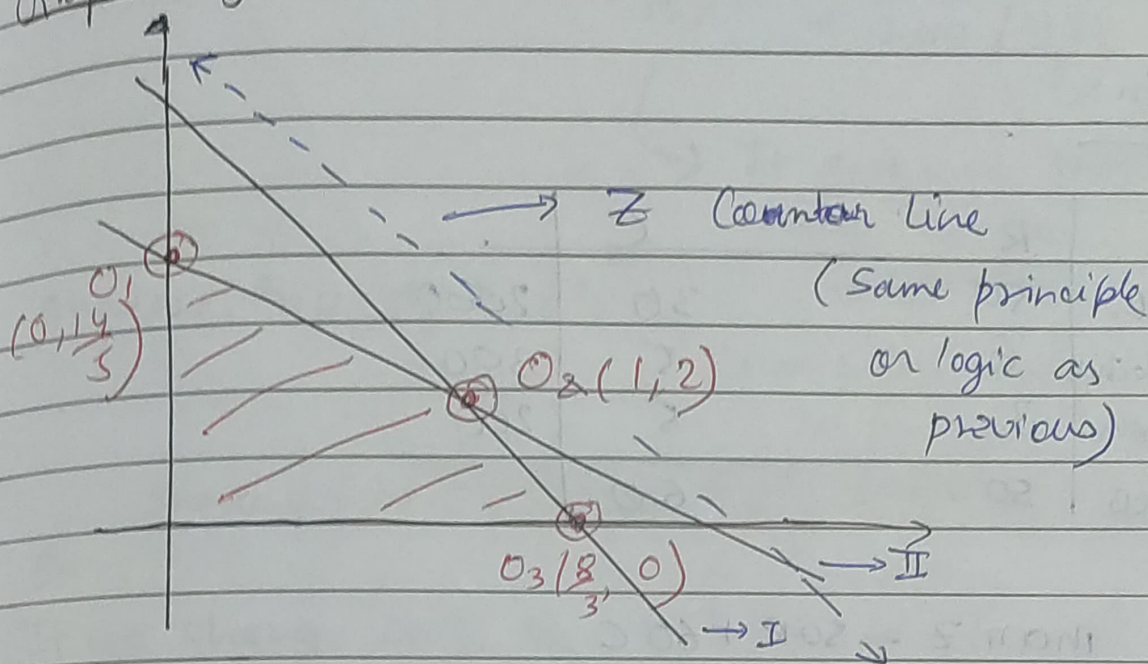 Z Countour line
(Same principle
or logic as
previous)
O1
(0, 14/3)
O2 (1, 2)
O3 (8/3, 0)
→ II
→ I